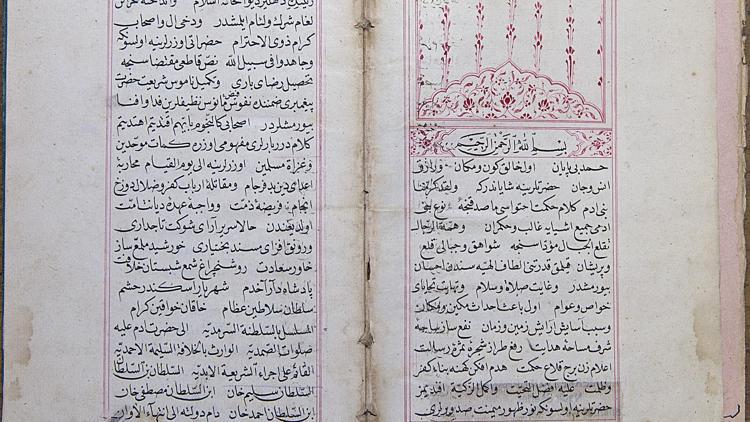 بسم الله الرحمن الرحيم
حمد بی پایان اول خالق کون و مکان و رازق
انس و جان حضرتلرینه شایاندرکه ولقد کرمنا
بنی ادم کلام حکمت احتواسی ماصدقنجه نوع بنی
ادمی جمیع اشیایه غالب و حکمران وهمة الرجال
تقلع الجبال مؤداسنجه شواهق و جبالی قلع
و پریشان قیلمق قدرتنی الطاف الهیه سندن احسان
بیورمشدر وغایت صلاة وسلام و نهایت تحایای
خواص و عوام اول باعث احداث مکین و مکان
و سبب اسایش ارایش زمین و زمان
شرف ساحۀ هدایت رفع طراز شجرۀ ثمرۀ رسالت
اعلام زن برج قلاع حکمت هدم افکن کهنه بناء کفر
وظلمت علیه افضل التحیت و اکمل الزکیة افندیمز
حضرتلرینه اولسونکه نور ظهور میمنت
لغام شرک ولئام ایلمشدر ودخی ال و اصحاب
کرام ذوی الاحترام حضراتی اوزرلرینه اولسونکه
وجاهدوا فی سبیل الله نص قاطعی مقتضاسنجه
تحصیل رضای باری و تکمیل ناموس شریعت حضرت
پیغمبری ضمننده نفوس نفیس مأنوس نظیفلرین فدا و افنا
بیورمشلردر اصحابی کالنجوم بایهم اقتدیتم اهتدیتم
کلام درربارلری مفهومی اوزره کمات موحدین
وغزاة مسلمین اوزرلرینه الی یوم القیام محاربۀ
اعدای دین بد فرجام و مقاتلۀ ارباب کفر و ضلال دوزخ
انجام فریضۀ ذمت و واجبۀ عهدۀ دیانت
اولدیغندن حالا سریر آرای شوکت تاجداری
و رونق افزای مسند بختیاری خورشید ملمع ساز
خاور سعادت روشنی چراغ شمع شبستان خلافت
پادشاه دارا خدم شهریار اسکندر حشم
سلطان سلاطین عظام خاقان خواقین کرام
المسلسل بالسلطنة السرمدیة الی حضرت ادم علیه
صلوات الصمدیة الوارث بالخلافة السلیمة الاحمدیة
القائم علی اجراء الشریعة الابدیة السلطان بن السلطان
السلطان سلیم خان ابن السلطان مصطفی خان
ابن السلطان احمد خان دام دولته الی انتهاء الاوان